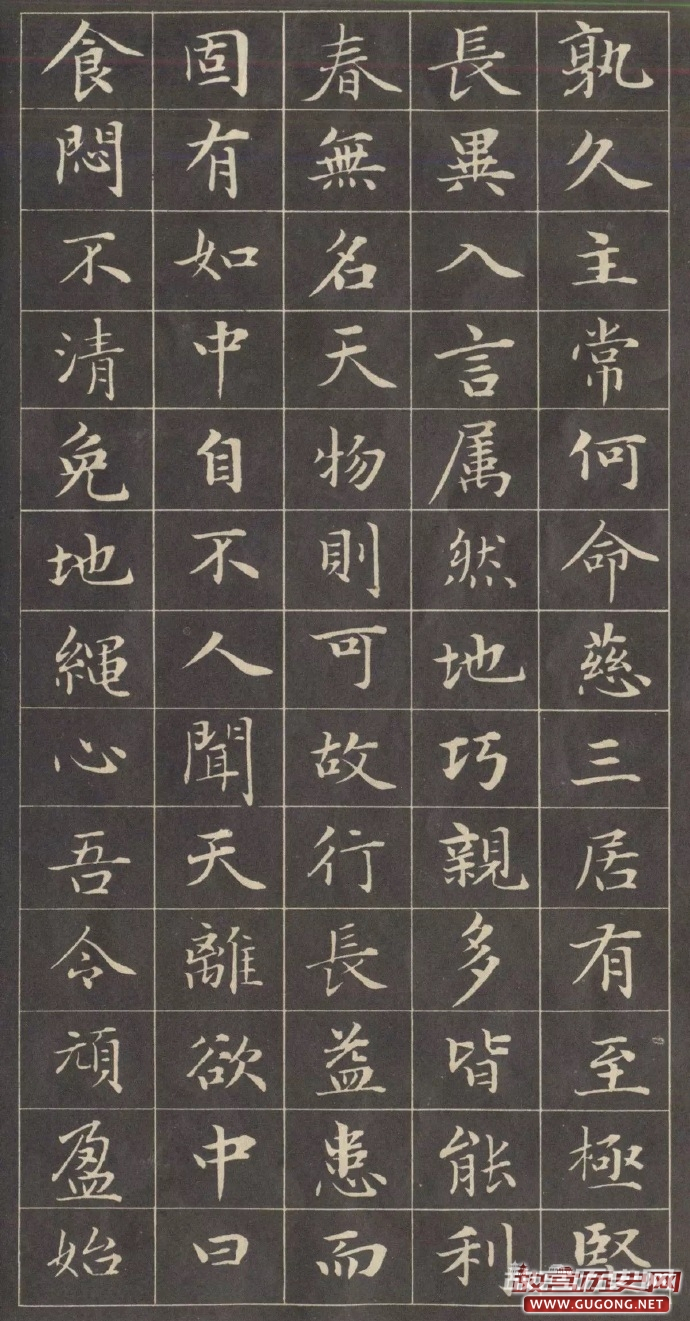 孰久主常何命慈三居有至極堅
長異入言属然地巧親多皆能利
春無名天物則可故行長益患而
固有如中自不人聞天離欲中曰
食悶不清免地繩心吾令頑盈始
故宫历史网
WWW.GUGONG.NET